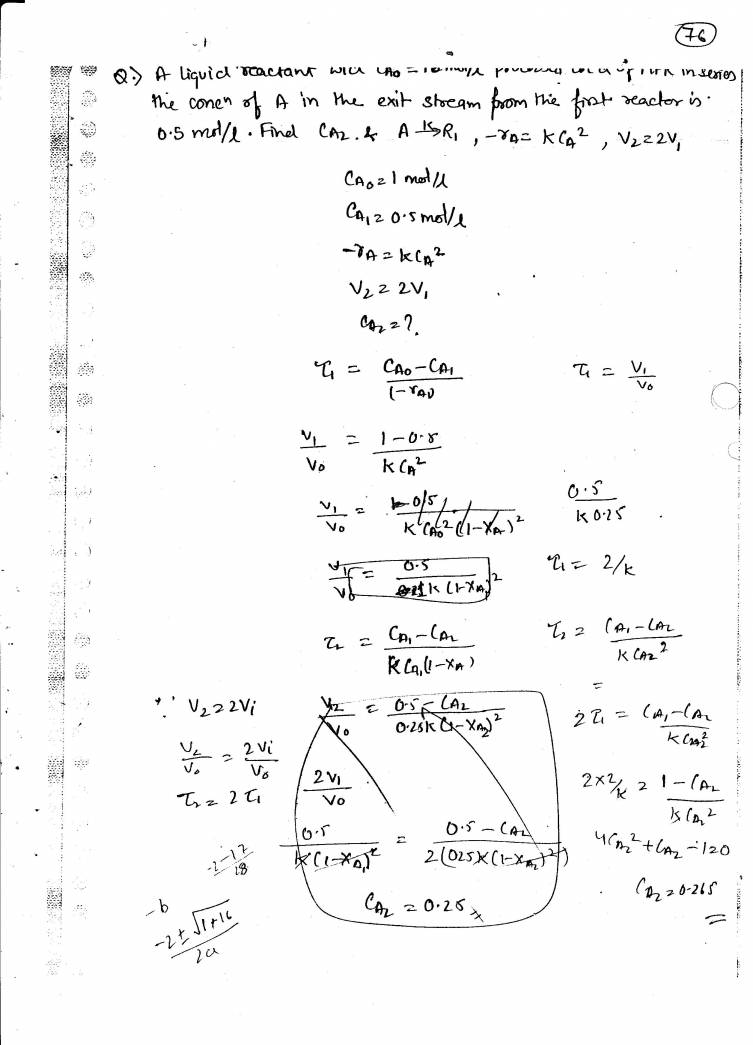 76
Q.) A liquid reactant with CA0 = in series
the concn of A in the exit stream from the first reactor is.
0.5 mol/l. Find CA2. & A →k R1, -rA = kCA², V2 = 2V1
CA0 = 1 mol/l
CA1 = 0.5 mol/l
-rA = kCA²
V2 = 2V1
CA2 = ?.
τ1 = (CA0 - CA1)/(1-rA1) τ1 = V1/V0
V1/V0 = (1 - 0.5)/(kCA²)
V1/V0 = 0.5/(k CA0² (1-XA)²) 0.5/(k 0.25)
V1/V0 = 0.5/(k (1-XA1)²) τ1 = 2/k
τ2 = (CA1 - CA2)/(k CA1 (1-XA)) τ2 = (CA1 - CA2)/(k CA2²)
=
∵ V2 = 2Vi V2/V0 = (0.5 - CA2)/(0.25k (1-XA2)²) 2τ1 = (CA1 - CA2)/(k CA2²)
V2/V0 = 2Vi/V0 2V1/V0 2×2/k = (1 - CA2)/(k CA2²)
τ2 = 2τ1
0.5/(k(1-XA1)²) = (0.5 - CA2)/(2(025k(1-XA2)²)) 4CA2² + CA2 - 1 = 0
-1-17/18
CA2 = 0.25 CA2 = 0.265
-b
(-2 ± √1+16)/2a